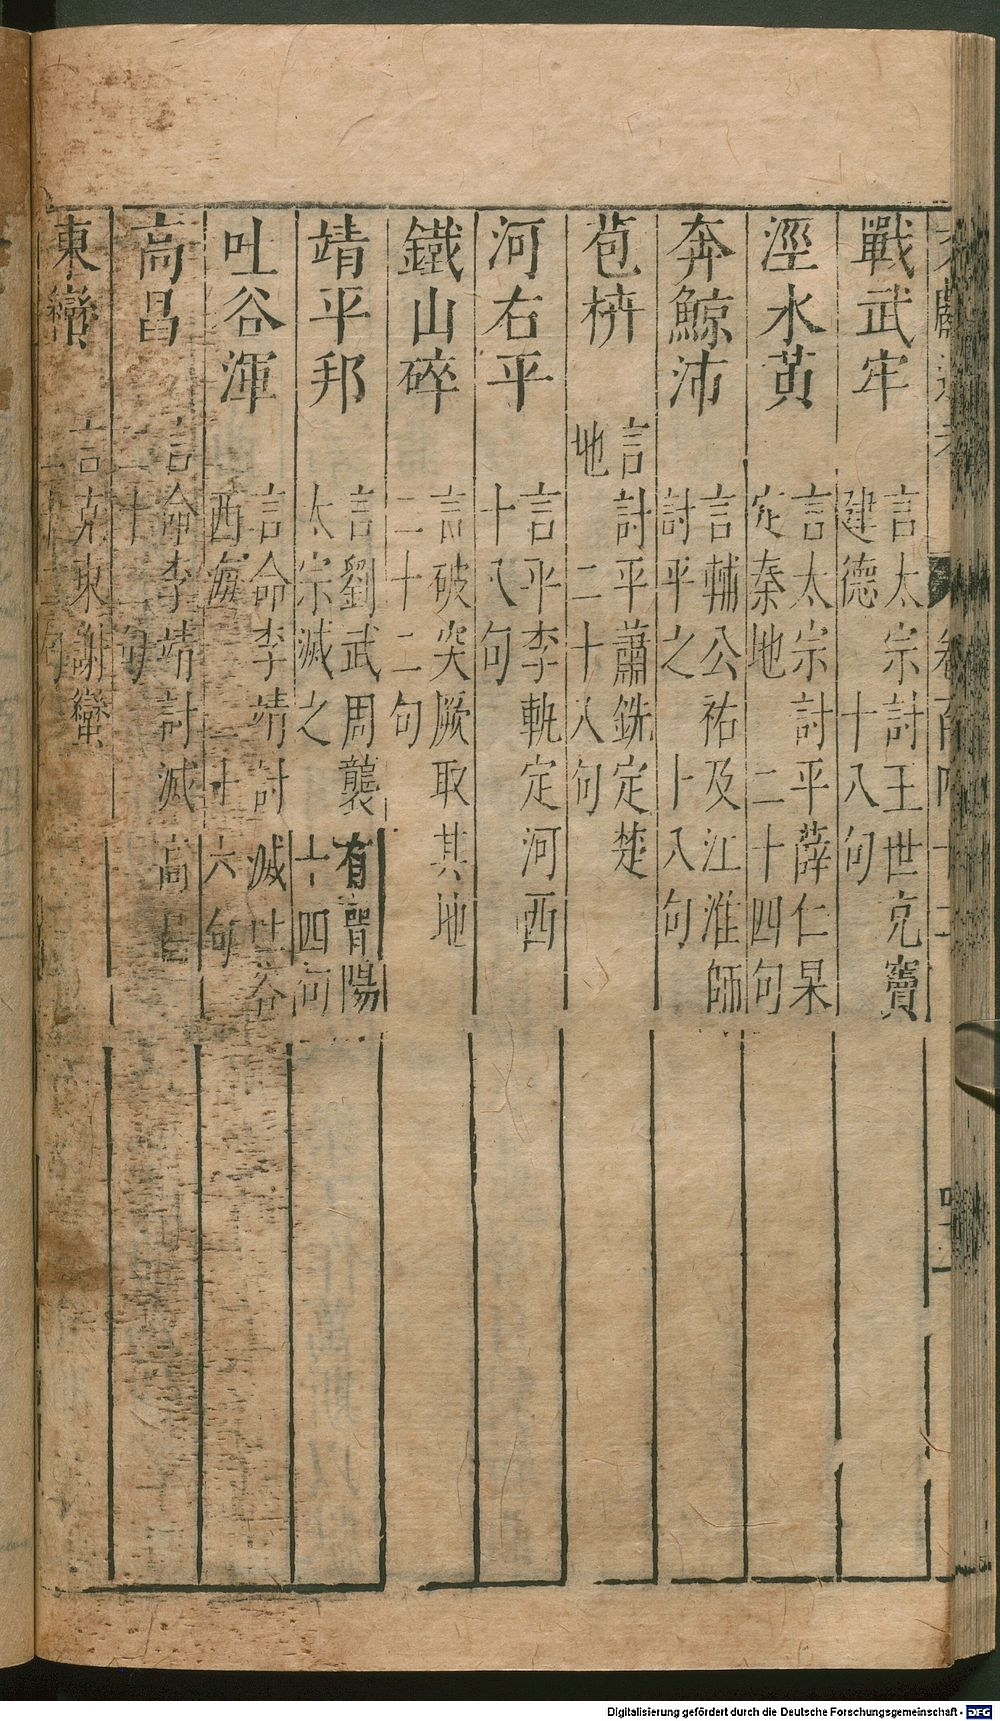 戰武牢 言太宗討王世充竇建德 十八句
涇水黃 言太宗討平薛仁杲定秦地 二十四句
奔鯨沛 言輔公祐及江淮師討平之 十八句
苞枿 言討平蕭銑定楚地 二十八句
河右平 言平李軌定河西 十八句
鐵山碎 言破突厥取其地 二十二句
靖平邦 言劉武周襲有晉陽太宗滅之 十四句
吐谷渾 言命李靖討滅吐谷西海 二十六句
高昌 言命李靖討滅高昌 二十二句
東蠻 言克東謝蠻 二十二句
Digitalisierung gefördert durch die Deutsche Forschungsgemeinschaft - DFG